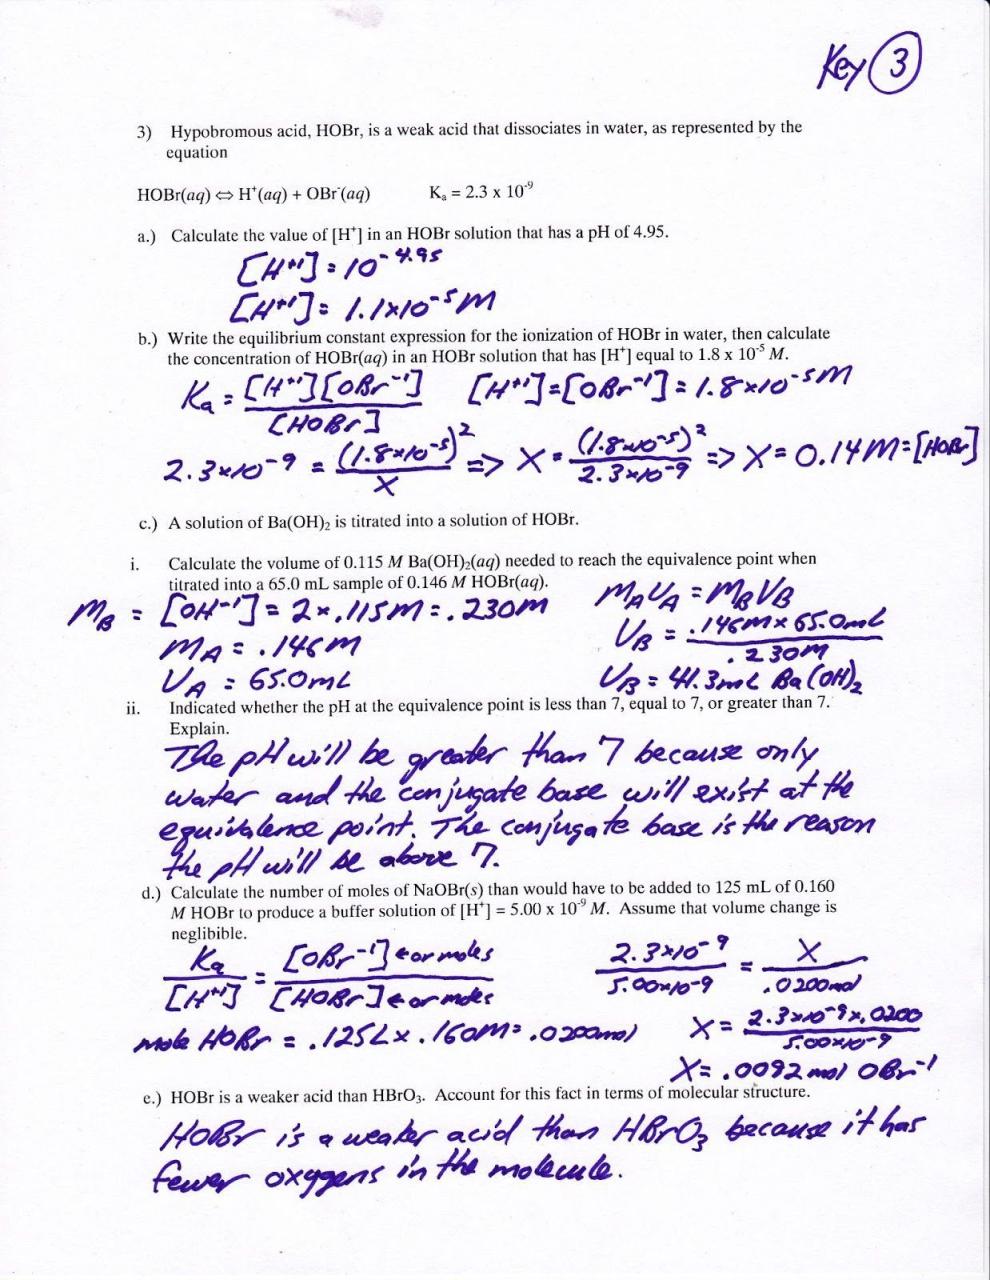 Key 3
3) Hypobromous acid, HOBr, is a weak acid that dissociates in water, as represented by the
equation
HOBr(aq) ⇔ H⁺(aq) + OBr⁻(aq) Kₐ = 2.3 x 10⁻⁹
a.) Calculate the value of [H⁺] in an HOBr solution that has a pH of 4.95.
[H⁺¹] = 10⁻⁴·⁹⁵
[H⁺¹] = 1.1x10⁻⁵ M
b.) Write the equilibrium constant expression for the ionization of HOBr in water, then calculate
the concentration of HOBr(aq) in an HOBr solution that has [H⁺] equal to 1.8 x 10⁻⁵ M.
Ka = [H⁺¹][OBr⁻¹] / [HOBr] [H⁺¹]=[OBr⁻¹] = 1.8x10⁻⁵M
2.3x10⁻⁹ = (1.8x10⁻⁵)² / X => X = (1.8x10⁻⁵)² / 2.3x10⁻⁹ => X = 0.14M=[HOBr]
c.) A solution of Ba(OH)₂ is titrated into a solution of HOBr.
i. Calculate the volume of 0.115 M Ba(OH)₂(aq) needed to reach the equivalence point when
titrated into a 65.0 mL sample of 0.146 M HOBr(aq).
M_B = [OH⁻¹] = 2x.115M = .230M
M_A = .146M
V_A = 65.0mL
M_A V_A = M_B V_B
V_B = .146M x 65.0mL / .230M
V_B = 41.3mL Ba(OH)₂
ii. Indicated whether the pH at the equivalence point is less than 7, equal to 7, or greater than 7.
Explain.
The pH will be greater than 7 because only
water and the conjugate base will exist at the
equivalence point. The conjugate base is the reason
the pH will be above 7.
d.) Calculate the number of moles of NaOBr(s) than would have to be added to 125 mL of 0.160
M HOBr to produce a buffer solution of [H⁺] = 5.00 x 10⁻⁹ M. Assume that volume change is
neglibible.
Ka / [H⁺¹] = [OBr⁻¹] ← or moles / [HOBr] ← or moles
mole HOBr = .125L x .160M = .0200mol
2.3x10⁻⁹ / 5.00x10⁻⁹ = X / .0200mol
X = 2.3x10⁻⁹ x .0200 / 5.00x10⁻⁹
X = .0092 mol OBr⁻¹
e.) HOBr is a weaker acid than HBrO₃. Account for this fact in terms of molecular structure.
HOBr is a weaker acid than HBrO₃ because it has
fewer oxygens in the molecule.